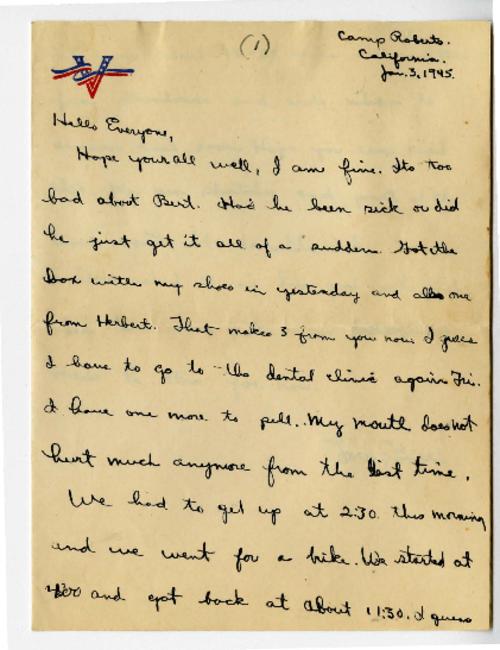 (1)
Camp Roberts.
California.
Jan. 3, 1945.
Hello Everyone,
Hope your all well, I am fine. Its too
bad about Bert. Has he been sick or did
he just get it all of a sudden. Got the
box with my shoes in yesterday and also one
from Herbert. That makes 3 from you now. I guess
I have to go to the dental clinic again Fri.
I have one more to pull. My mouth does not
hurt much anymore from the last time.
We had to get up at 2:30 this morning
and we went for a hike. We started at
and got back at about 11:30. I guess